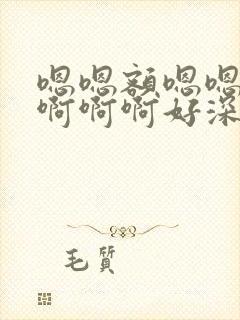 嗯嗯额嗯嗯
啊啊啊好深
毛質